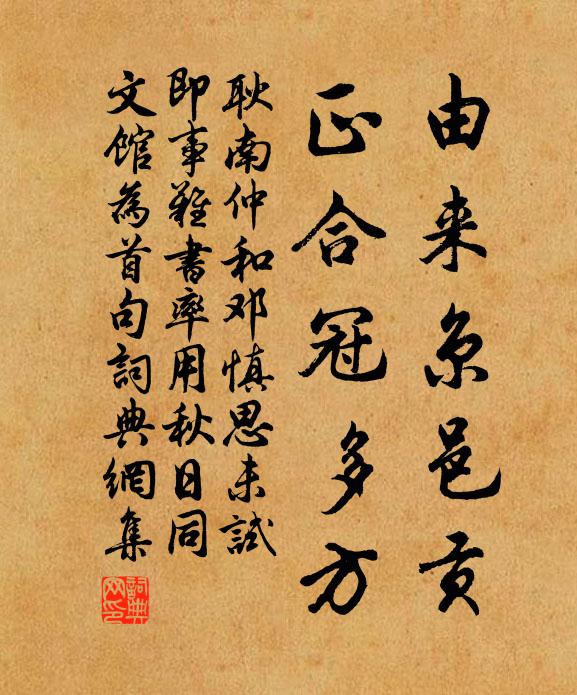 由来京邑贡
正合冠多方
耿南仲和邓慎思未試
即事難書率用秋日同
文館為首句詞典網集
詞典網印